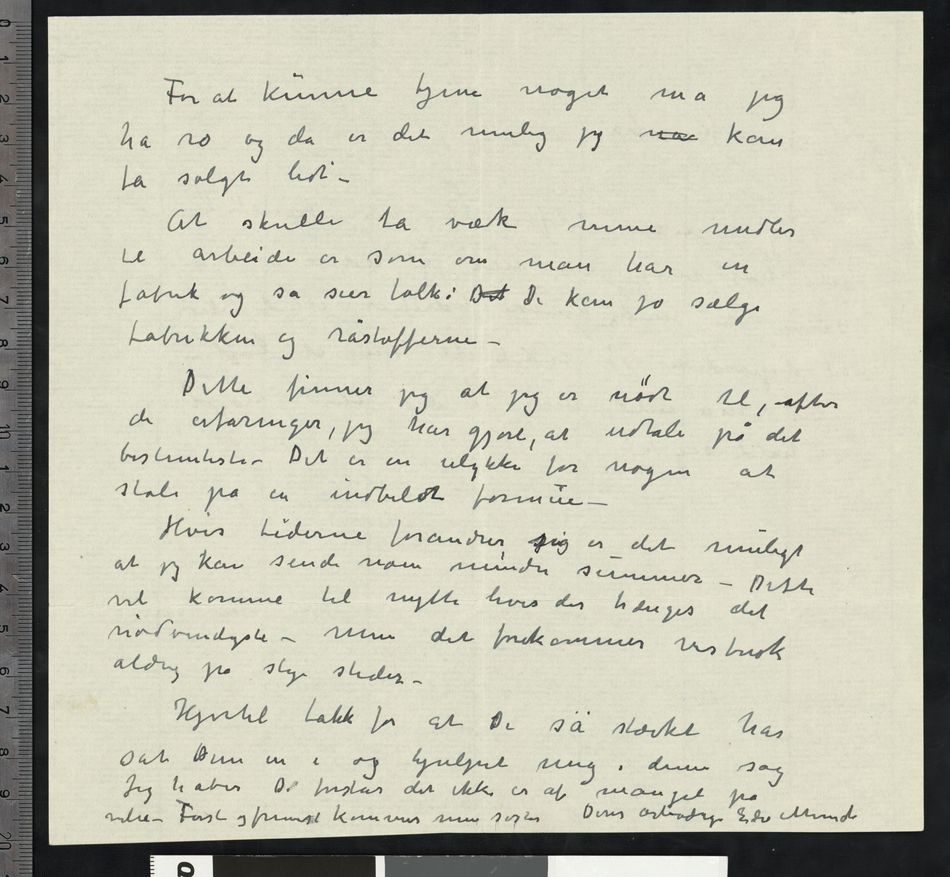 For at künne tjene noget ma jeg
ha ro og da er det mulig jeg ~~maa~~ kan
fa solgt lidt –
At skulle ta væk mine midler
til arbeide er som om man har en
fabrik og sa sier folk: ~~Det~~ De kan jo sælge
fabrikken og råstofferne –
Dette finner jeg at jeg er nödt til, efter
de erfaringer, jeg har gjort, at udtale på det
bestemteste – Det er en ulykke for nogen at
stole pa en indbildt formüe –
Hvis tiderne forandrer sig er det muligt
at jeg kan sende nom mindre summer – Dette
vil komme til nytte hvis der trænges det
nödvendigste – men det forekommer vistnok
aldrig pa slige steder –
Hjertelig takk for at De så stærkt har
sat Dem in i og hjulpet mig i denne sag
Jeg haber De forstår det ikke er af mangel pa
vilie – Först og fremst kommer min søster Deres ærbødige Edv Munch